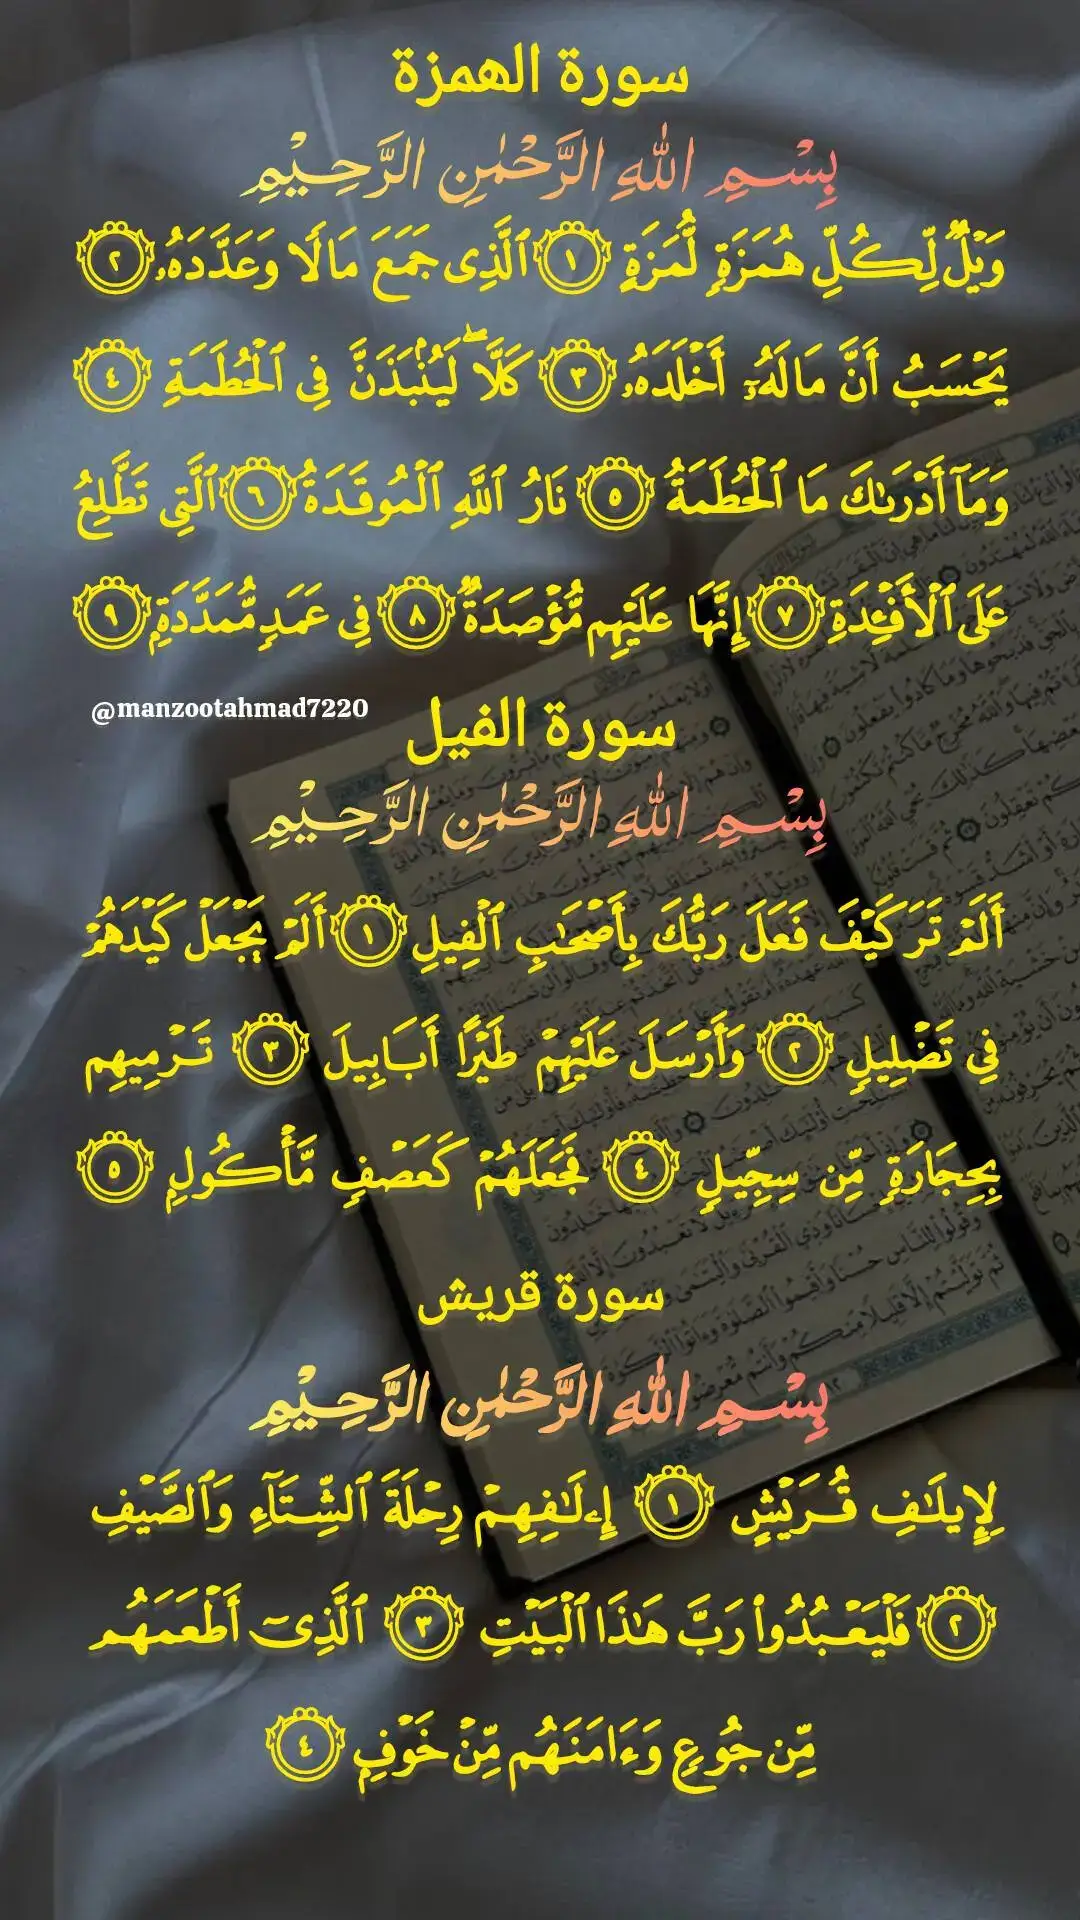 سورة الهمزة
بِسْمِ اللهِ الرَّحْمٰنِ الرَّحِيْمِ
وَيْلٌ لِّكُلِّ هُمَزَةٍ لُّمَزَةٍ ١ ٱلَّذِى جَمَعَ مَالًا وَعَدَّدَهُۥ ٢
يَحْسَبُ أَنَّ مَالَهُۥٓ أَخْلَدَهُۥ ٣ كَلَّاۖ لَيُنۢبَذَنَّ فِى ٱلْحُطَمَةِ ٤
وَمَآ أَدْرَىٰكَ مَا ٱلْحُطَمَةُ ٥ نَارُ ٱللَّهِ ٱلْمُوقَدَةُ ٦ ٱلَّتِى تَطَّلِعُ
عَلَى ٱلْأَفْـِٔدَةِ ٧ إِنَّهَا عَلَيْهِم مُّؤْصَدَةٌ ٨ فِى عَمَدٍ مُّمَدَّدَةٍۭ ٩
@manzootahmad7220
سورة الفيل
بِسْمِ اللهِ الرَّحْمٰنِ الرَّحِيْمِ
أَلَمْ تَرَ كَيْفَ فَعَلَ رَبُّكَ بِأَصْحَٰبِ ٱلْفِيلِ ١ أَلَمْ يَجْعَلْ كَيْدَهُمْ
فِى تَضْلِيلٍ ٢ وَأَرْسَلَ عَلَيْهِمْ طَيْرًا أَبَابِيلَ ٣ تَرْمِيهِم
بِحِجَارَةٍ مِّن سِجِّيلٍ ٤ فَجَعَلَهُمْ كَعَصْفٍ مَّأْكُولٍۭ ٥
سورة قريش
بِسْمِ اللهِ الرَّحْمٰنِ الرَّحِيْمِ
لِإِيلَٰفِ قُرَيْشٍ ١ إِۦلَٰفِهِمْ رِحْلَةَ ٱلشِّتَآءِ وَٱلصَّيْفِ
٢ فَلْيَعْبُدُوا۟ رَبَّ هَٰذَا ٱلْبَيْتِ ٣ ٱلَّذِىٓ أَطْعَمَهُم
مِّن جُوعٍ وَءَامَنَهُم مِّنْ خَوْفٍۭ ٤